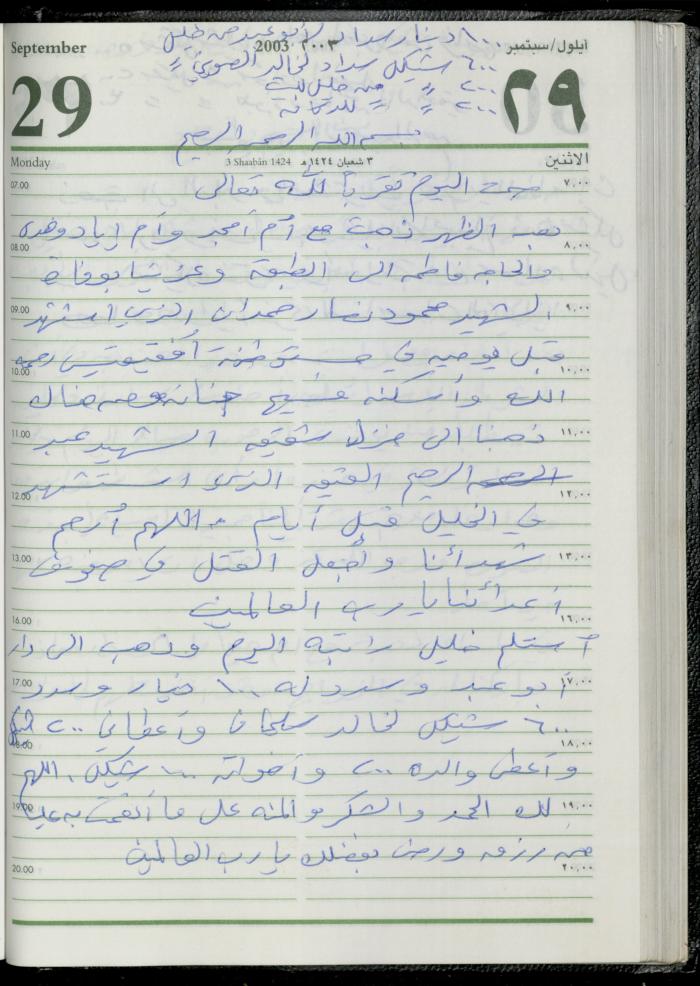 ١٠٠ دينار سداد لأبو عبد من خليل
September 2003 ٢٠٠٣ ايلول/سبتمبر
٦٠٠ شيكل سداد لخالد
29 ٢٩
٢٠٠ " من خليل للبيت
٢٠٠ "
بسم الله الرحمن الرحيم
Monday 3 Shaabân 1424 ٣ شعبان ١٤٢٤هـ الاثنين
07.00 صمت اليوم تقرباً لله تعالى ٧,٠٠
بعد الظهر ذهبت مع أم أمجد وأم إياد وهدى
08.00 ٨,٠٠
والحاجه فاطمه الى الطبقة وعزينا بوفاة
09.00 الشهيد محمود نصار حمدان الذي استشهد ٩,٠٠
قبل يومين في مستوطنة رحمه
10.00 ١٠,٠٠
الله وأسكنه فسيح جنانه ومن هناك
11.00 ذهبنا الى منزل شقيقه الشهيد عبد ١١,٠٠
الرحيم الذي استشهد
12.00 ١٢,٠٠
في الخليل قبل أيام اللهم أرحم
13.00 شهدائنا وأجعل القتل في صفوف ١٣,٠٠
أعدائنا يا رب العالمين
16.00 ١٦,٠٠
أستلم خليل راتبه اليوم وذهب الى دار
17.00 أبو عبد وسدد له ١٠٠ دينار وسدد ١٧,٠٠
٦٠٠ شيكل لخالد وأعطاني ٢٠٠
18.00 ١٨,٠٠
وأعطى والده ٢٠٠ وأخواته ١٠٠ شيكل. اللهم
19.00 لك الحمد والشكر والمنه على ما أنعمت به علينا ١٩,٠٠
من رزق ورضى بفضلك يا رب العالمين
20.00 ٢٠,٠٠